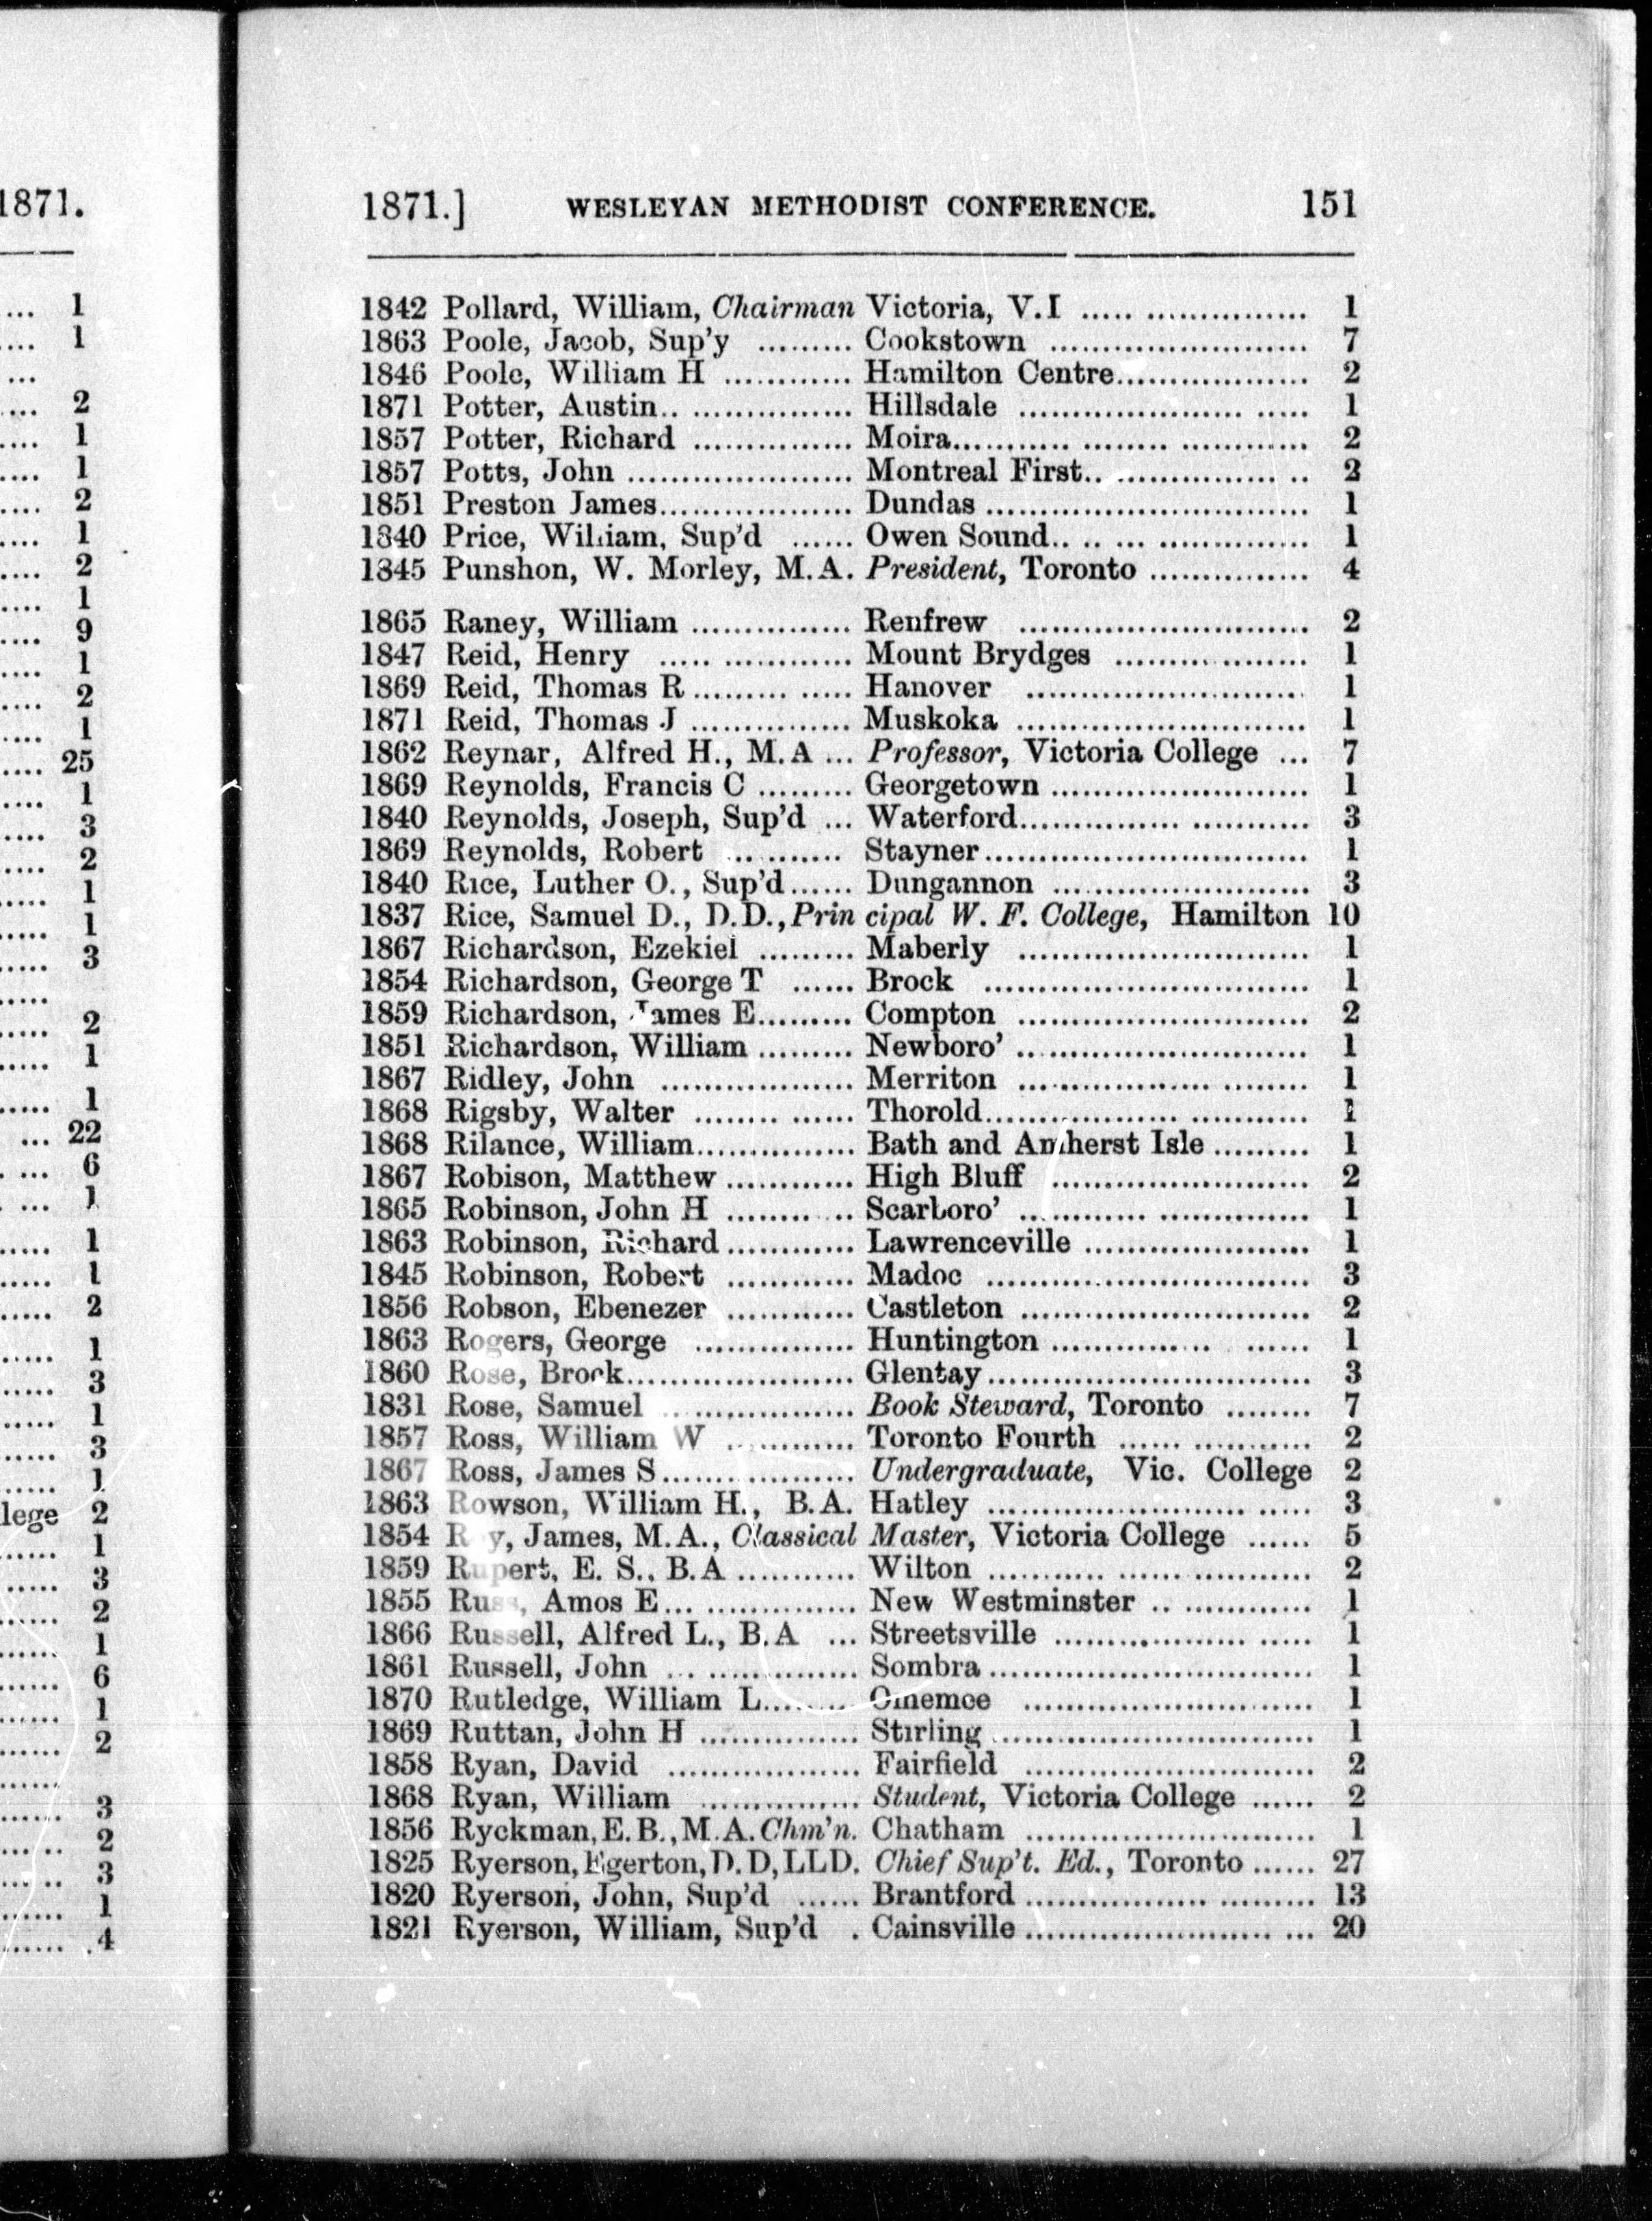 1871.
... 1
.... 1
...
.... 2
.... 1
.... 1
.... 2
.... 1
.... 2
.... 1
.... 9
.... 1
.... 2
.... 1
.... 25
..... 1
..... 3
..... 2
..... 1
..... 1
..... 3
.....
..... 2
..... 1
..... 1
... 22
... 6
... 1
..... 1
..... 1
..... 2
..... 1
..... 3
..... 1
..... 3
..... 1
lege 2
...... 1
..... 3
...... 2
...... 1
...... 6
...... 1
...... 2
......
...... 3
...... 2
..... 3
...... 1
...... 4
1871.] WESLEYAN METHODIST CONFERENCE. 151
1842 Pollard, William, Chairman Victoria, V.I ..... ................ 1
1863 Poole, Jacob, Sup'y ......... Cookstown ......................... 7
1846 Poole, William H ............ Hamilton Centre.................. 2
1871 Potter, Austin.. ............... Hillsdale ...................... ..... 1
1857 Potter, Richard ............... Moira........... ........ ............ 2
1857 Potts, John ..................... Montreal First.. ............... .. 2
1851 Preston James.................. Dundas ............................... 1
1840 Price, William, Sup'd ...... Owen Sound.. .. ... .............. 1
1845 Punshon, W. Morley, M.A. President, Toronto ............... 4
1865 Raney, William ............... Renfrew ............................ 2
1847 Reid, Henry ..... ............ Mount Brydges ................... 1
1869 Reid, Thomas R......... ..... Hanover ........................... 1
1871 Reid, Thomas J ............... Muskoka ............................ 1
1862 Reynar, Alfred H., M.A ... Professor, Victoria College ... 7
1869 Reynolds, Francis C ......... Georgetown ......................... 1
1840 Reynolds, Joseph, Sup'd ... Waterford............... ........... 3
1869 Reynolds, Robert ........... Stayner............................... 1
1840 Rice, Luther O., Sup'd...... Dungannon ......................... 3
1837 Rice, Samuel D., D.D., Prin cipal W. F. College, Hamilton 10
1867 Richardson, Ezekiel ......... Maberly ............................ 1
1854 Richardson, George T ...... Brock ............................... 1
1859 Richardson, James E......... Compton ............................ 2
1851 Richardson, William ......... Newboro' ............................ 1
1867 Ridley, John .................. Merriton ................... ........ 1
1868 Rigsby, Walter ........ ...... Thorold............................... 1
1868 Rilance, William............... Bath and Amherst Isle ......... 1
1867 Robison, Matthew ............ High Bluff ......................... 2
1865 Robinson, John H ............ Scarboro' ............ .............. 1
1863 Robinson, Richard ............ Lawrenceville ...................... 1
1845 Robinson, Robert ............ Madoc ............................... 3
1856 Robson, Ebenezer ............ Castleton ............................ 2
1863 Rogers, George ............... Huntington ............... ...... 1
1860 Rose, Brock..................... Glentay............................... 3
1831 Rose, Samuel .................. Book Steward, Toronto ........ 7
1857 Ross, William W ............ Toronto Fourth ...... ........... 2
1867 Ross, James S.................. Undergraduate, Vic. College 2
1863 Rowson, William H., B.A. Hatley ......................... ..... 3
1854 R y, James, M.A., Classical Master, Victoria College ...... 5
1859 Rupert, E. S., B.A ........... Wilton ........... .................. 2
1855 Russ, Amos E... .............. New Westminster .. ............ 1
1866 Russell, Alfred L., B.A ... Streetsville .................. ..... 1
1861 Russell, John ... .............. Sombra ............................... 1
1870 Rutledge, William L......... Omemee ............................ 1
1869 Ruttan, John H ............... Stirling .............................. 1
1858 Ryan, David .................. Fairfield ............................ 2
1868 Ryan, William ............... Student, Victoria College ...... 2
1856 Ryckman, E. B., M.A. Chm'n. Chatham ............................ 1
1825 Ryerson, Egerton, D.D, LLD. Chief Sup't. Ed., Toronto ...... 27
1820 Ryerson, John, Sup'd ...... Brantford .................. ......... 13
1821 Ryerson, William, Sup'd . Cainsville ........................ ... 20